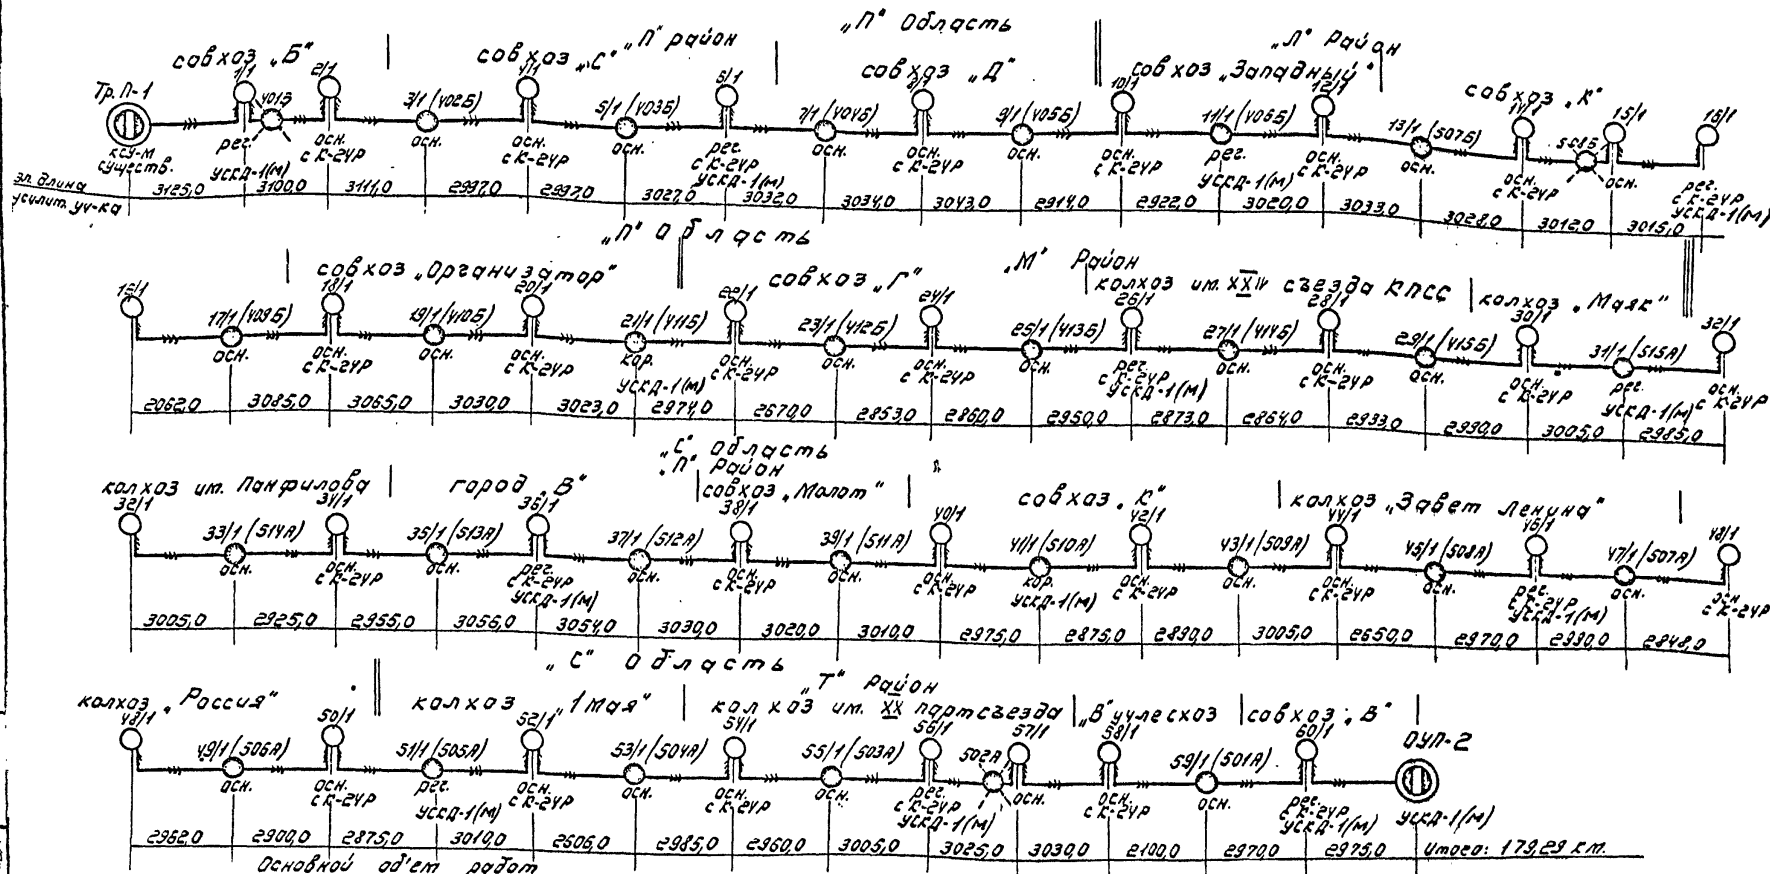 „П" Область
„П" район
„Л" Район
совхоз „Б"
совхоз „С"
совхоз „Д"
совхоз „Западный"
совхоз „К"
Тр. П-1
1/1
401Б
2/1
3/1 (402Б)
4/1
5/1 (403Б)
6/1
7/1 (404Б)
8/1
9/1 (405Б)
10/1
11/1 (406Б)
12/1
13/1 (507Б)
14/1
508Б
15/1
16/1
КСУ-М
существ.
рег.
УСКД-1(М)
осн.
с К-24Р
осн.
осн.
с К-24Р
осн.
рег.
с К-24Р
УСКД-1(М)
осн.
осн.
с К-24Р
осн.
осн.
с К-24Р
рег.
УСКД-1(М)
осн.
с К-24Р
осн.
осн.
с К-24Р
осн.
рег.
с К-24Р
УСКД-1(М)
эл. длина
усилит. уч-ка
3125,0 3100,0 3111,0 2997,0 2997,0 3027,0 3032,0 3034,0 3043,0 2914,0 2922,0 3020,0 3033,0 3028,0 3012,0 3015,0
„П" Область
„М" Район
совхоз „Организатор"
совхоз „Г"
колхоз им. XXIV съезда КПСС
колхоз „Маяк"
16/1
17/1 (409Б)
18/1
19/1 (410Б)
20/1
21/1 (411Б)
22/1
23/1 (412Б)
24/1
25/1 (413Б)
26/1
27/1 (414Б)
28/1
29/1 (415Б)
30/1
31/1 (515А)
32/1
осн.
осн.
с К-24Р
осн.
осн.
с К-24Р
кор.
УСКД-1(М)
осн.
с К-24Р
осн.
осн.
с К-24Р
осн.
рег.
с К-24Р
УСКД-1(М)
осн.
осн.
с К-24Р
осн.
осн.
с К-24Р
рег.
УСКД-1(М)
осн.
с К-24Р
2062,0 3085,0 3065,0 3030,0 3023,0 2974,0 2670,0 2853,0 2860,0 2950,0 2873,0 2864,0 2933,0 2990,0 3005,0 2985,0
„С" Область
„П" Район
колхоз им. Панфилова
город „В"
совхоз „Молот"
совхоз „К"
колхоз „Завет Ленина"
32/1
33/1 (514А)
34/1
35/1 (513А)
36/1
37/1 (512А)
38/1
39/1 (511А)
40/1
41/1 (510А)
42/1
43/1 (509А)
44/1
45/1 (508А)
46/1
47/1 (507А)
48/1
осн.
осн.
с К-24Р
осн.
рег.
с К-24Р
УСКД-1(М)
осн.
осн.
с К-24Р
осн.
осн.
с К-24Р
кор.
УСКД-1(М)
осн.
с К-24Р
осн.
осн.
с К-24Р
осн.
рег.
с К-24Р
УСКД-1(М)
осн.
осн.
с К-24Р
3005,0 2925,0 2955,0 3056,0 3054,0 3030,0 3020,0 3010,0 2975,0 2875,0 2890,0 3005,0 2650,0 2970,0 2990,0 2848,0
„С" Область
„Т" Район
колхоз „Россия"
колхоз „1 Мая"
колхоз им. XX партсъезда
„В" учлесхоз
совхоз „В"
48/1
49/1 (506А)
50/1
51/1 (505А)
52/1
53/1 (504А)
54/1
55/1 (503А)
56/1
502А
57/1
58/1
59/1 (501А)
60/1
ОУП-2
осн.
осн.
с К-24Р
рег.
УСКД-1(М)
осн.
с К-24Р
осн.
осн.
с К-24Р
осн.
рег.
с К-24Р
УСКД-1(М)
осн.
осн.
с К-24Р
осн.
рег.
с К-24Р
УСКД-1(М)
УСКД-1(М)
2962,0 2900,0 2875,0 3010,0 2606,0 2985,0 2960,0 3005,0 3025,0 3030,0 2100,0 2970,0 2975,0 Итого: 179,29 км.
Основной об'ем работ